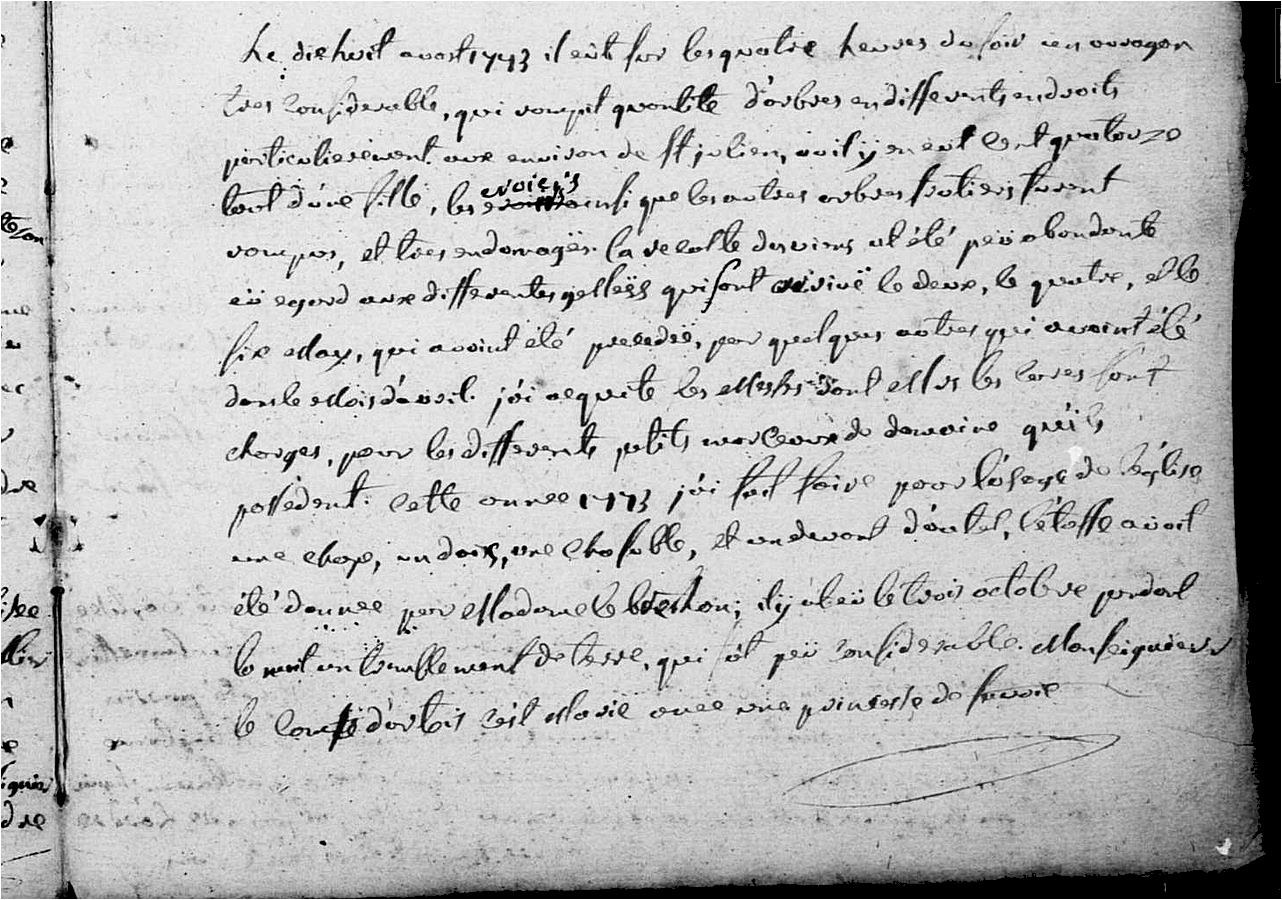 Le dixhuit aoust 1773 il eut sur les quatre heures du soir un ouragan
tres considerable, qui rompit quantité d'arbres en differents endroits
particulierement aux environ de St julien, ou il y en eut cent quatorze
tout d'une fille, les noiers ainsi que les autres arbres fruitiers furent
rompus, et tres endomagës. la recolte des vins at été peü abondante
eü egard aux differentes gellëës qui sont arrivë le deux, le quatre, et le
six May, qui avoint été precedée, par quelques autres qui avoint été
dans le Mois d'avril. j'ai acquité les Messes dont Mrs les Cures sont
charges, pour les differents petits morceaux de domaine qu'ils
possedent. Cette année 1773 j'ai fait faire pour l'usage de l'église
une chape, un daix, une Chasuble, et un devant d'autel, l'étoffe avoit
été donnee par Madame le ; il y at eü le trois octobre pendant
la nuit un tremblement de terre, qui fut peü considerable. Monseigneur
le Comte d'artois c'est Marié avec une princesse de savoie